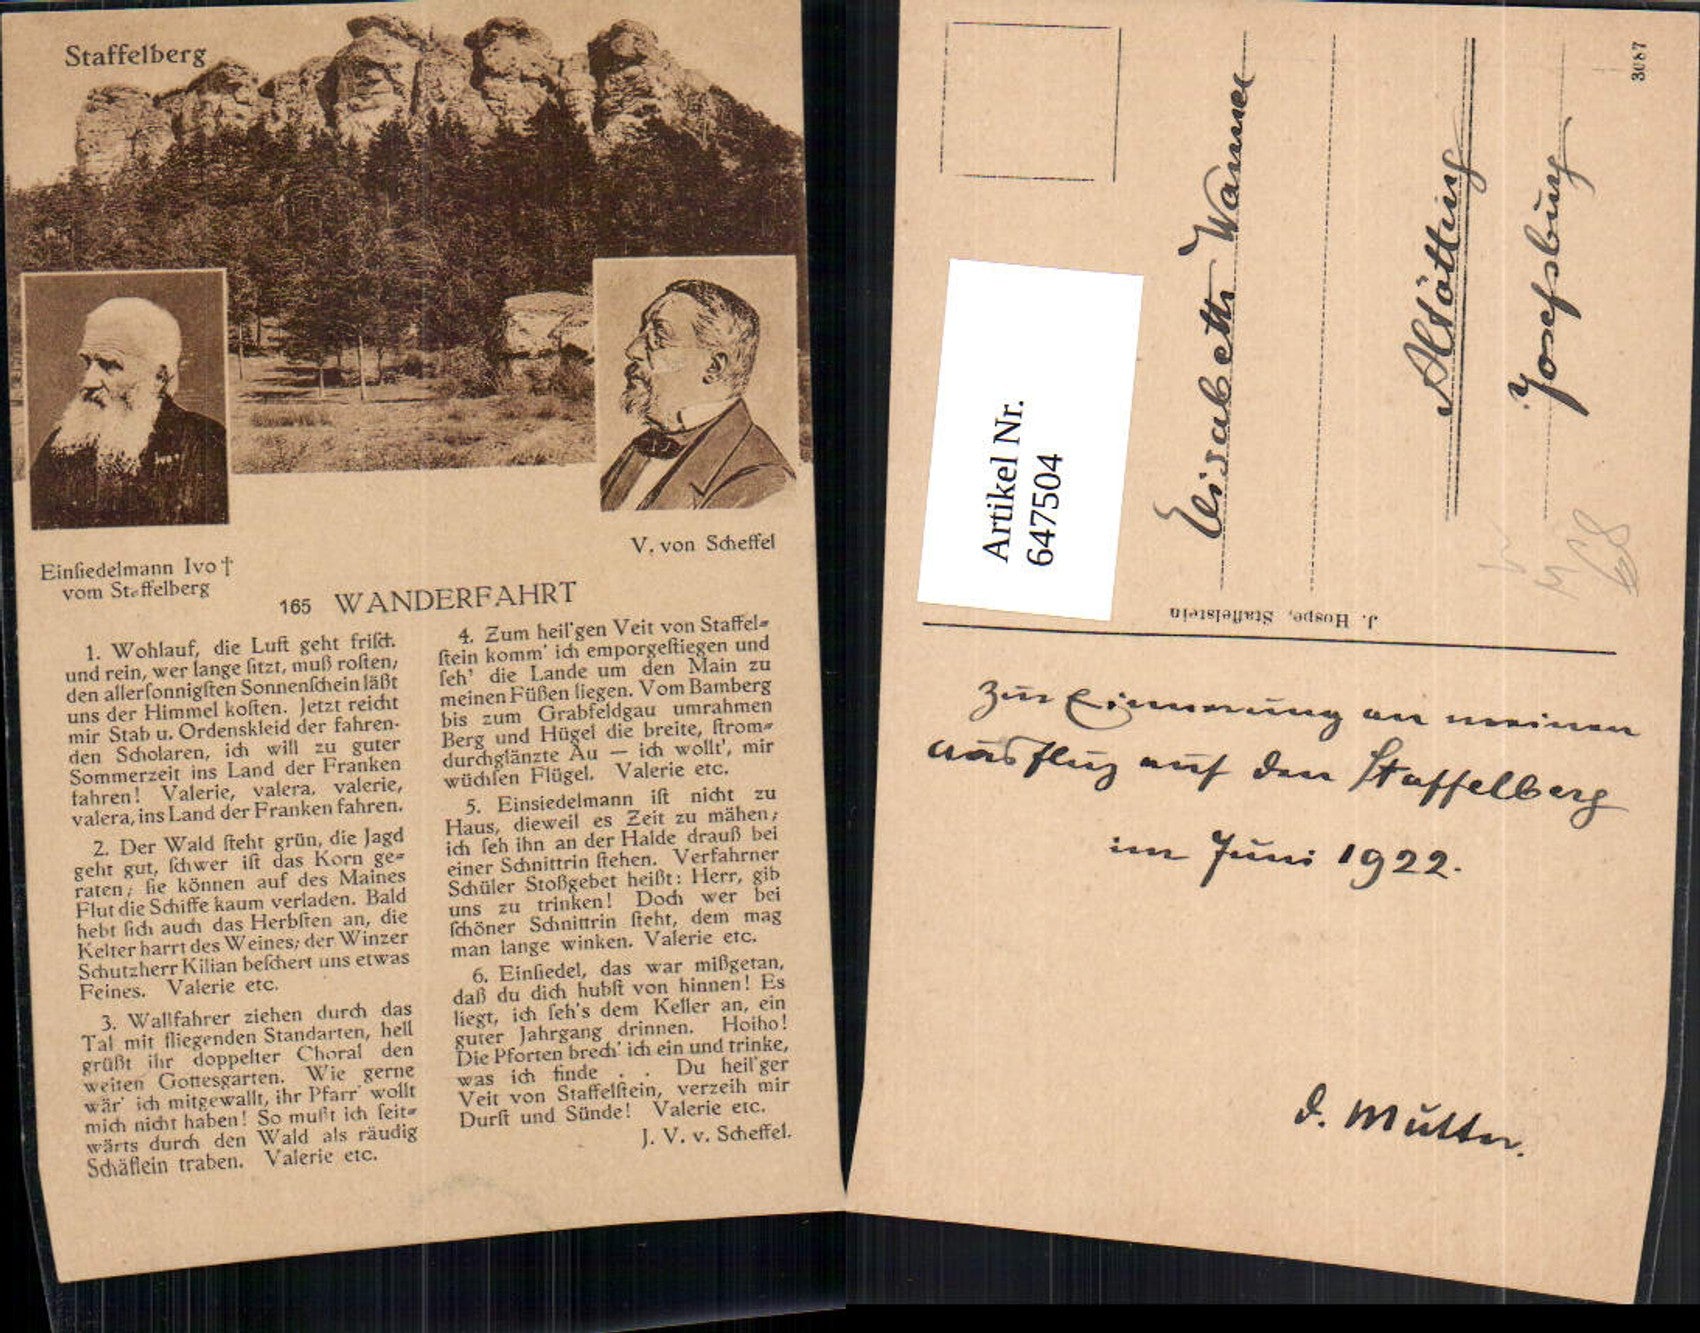 Staffelberg
Einsiedelmann Ivo †
vom Staffelberg
V. von Scheffel
165 WANDERFAHRT
1. Wohlauf, die Luft geht frisch
und rein, wer lange sitzt, muß rosten;
den allersonnigsten Sonnenschein läßt
uns der Himmel kosten. Jetzt reicht
mir Stab u. Ordenskleid der fahren-
den Scholaren, ich will zu guter
Sommerzeit ins Land der Franken
fahren! Valerie, valera, valerie,
valera, ins Land der Franken fahren.
2. Der Wald steht grün, die Jagd
geht gut, schwer ist das Korn ge-
raten; sie können auf des Maines
Flut die Schiffe kaum verladen. Bald
hebt sich auch das Herbsten an, die
Kelter harrt des Weines; der Winzer
Schutzherr Kilian beschert uns etwas
Feines. Valerie etc.
3. Wallfahrer ziehen durch das
Tal mit fliegenden Standarten, hell
grüßt ihr doppelter Choral den
weiten Gottesgarten. Wie gerne
wär' ich mitgewallt, ihr Pfarr' wollt
mich nicht haben! So mußt ich seit-
wärts durch den Wald als räudig
Schäflein traben. Valerie etc.
4. Zum heil'gen Veit von Staffel-
stein komm' ich emporgestiegen und
seh' die Lande um den Main zu
meinen Füßen liegen. Vom Bamberg
bis zum Grabfeldgau umrahmen
Berg und Hügel die breite, strom-
durchglänzte Au — ich wollt', mir
wüchsen Flügel. Valerie etc.
5. Einsiedelmann ist nicht zu
Haus, dieweil es Zeit zu mähen;
ich seh ihn an der Halde drauß bei
einer Schnittrin stehen. Verfahrner
Schüler Stoßgebet heißt: Herr, gib
uns zu trinken! Doch wer bei
schöner Schnittrin steht, dem mag
man lange winken. Valerie etc.
6. Einsiedel, das war mißgetan,
daß du dich hubst von hinnen! Es
liegt, ich seh's dem Keller an, ein
guter Jahrgang drinnen. Hoiho!
Die Pforten brech' ich ein und trinke,
was ich finde . . Du heil'ger
Veit von Staffelstein, verzeih mir
Durst und Sünde! Valerie etc.
J. V. v. Scheffel.
3087
Elisabeth Wanner
Altötting
Josefsburg
Artikel Nr.
647504
68
J. Hospe, Staffelstein
Zur Erinnerung an meinen
Ausflug auf den Staffelberg
im Juni 1922.
d. Mutter.